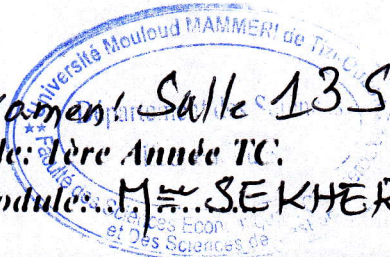 Université Mouloud MAMMERI de Tizi-Ou
amen: Salle 135
le: 1ère Année TC.
odule:...Mme SEKHER
Faculté des Sciences Econ
et Des Sciences de